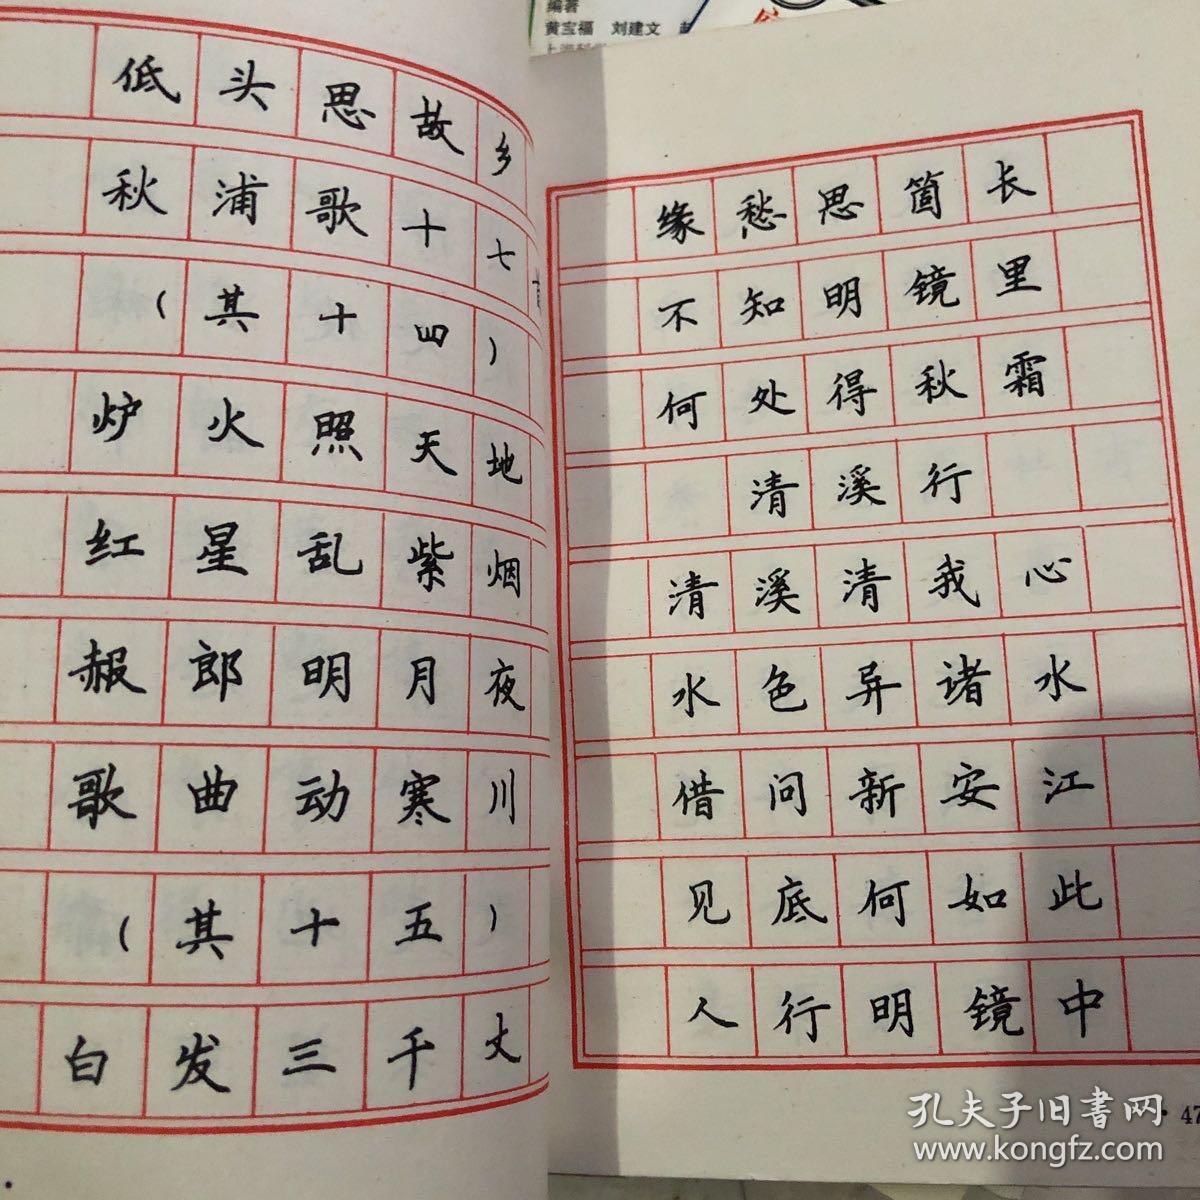 编著
黄宝福 刘建文
低头思故乡
秋浦歌十七
(其十四)
炉火照天地
红星乱紫烟
赧郎明月夜
歌曲动寒川
(其十五)
白发三千丈
缘愁思箇长
不知明镜里
何处得秋霜
清溪行
清溪清我心
水色异诸水
借问新安江
见底何如此
人行明镜中
47
孔夫子旧書网
www.kongfz.com